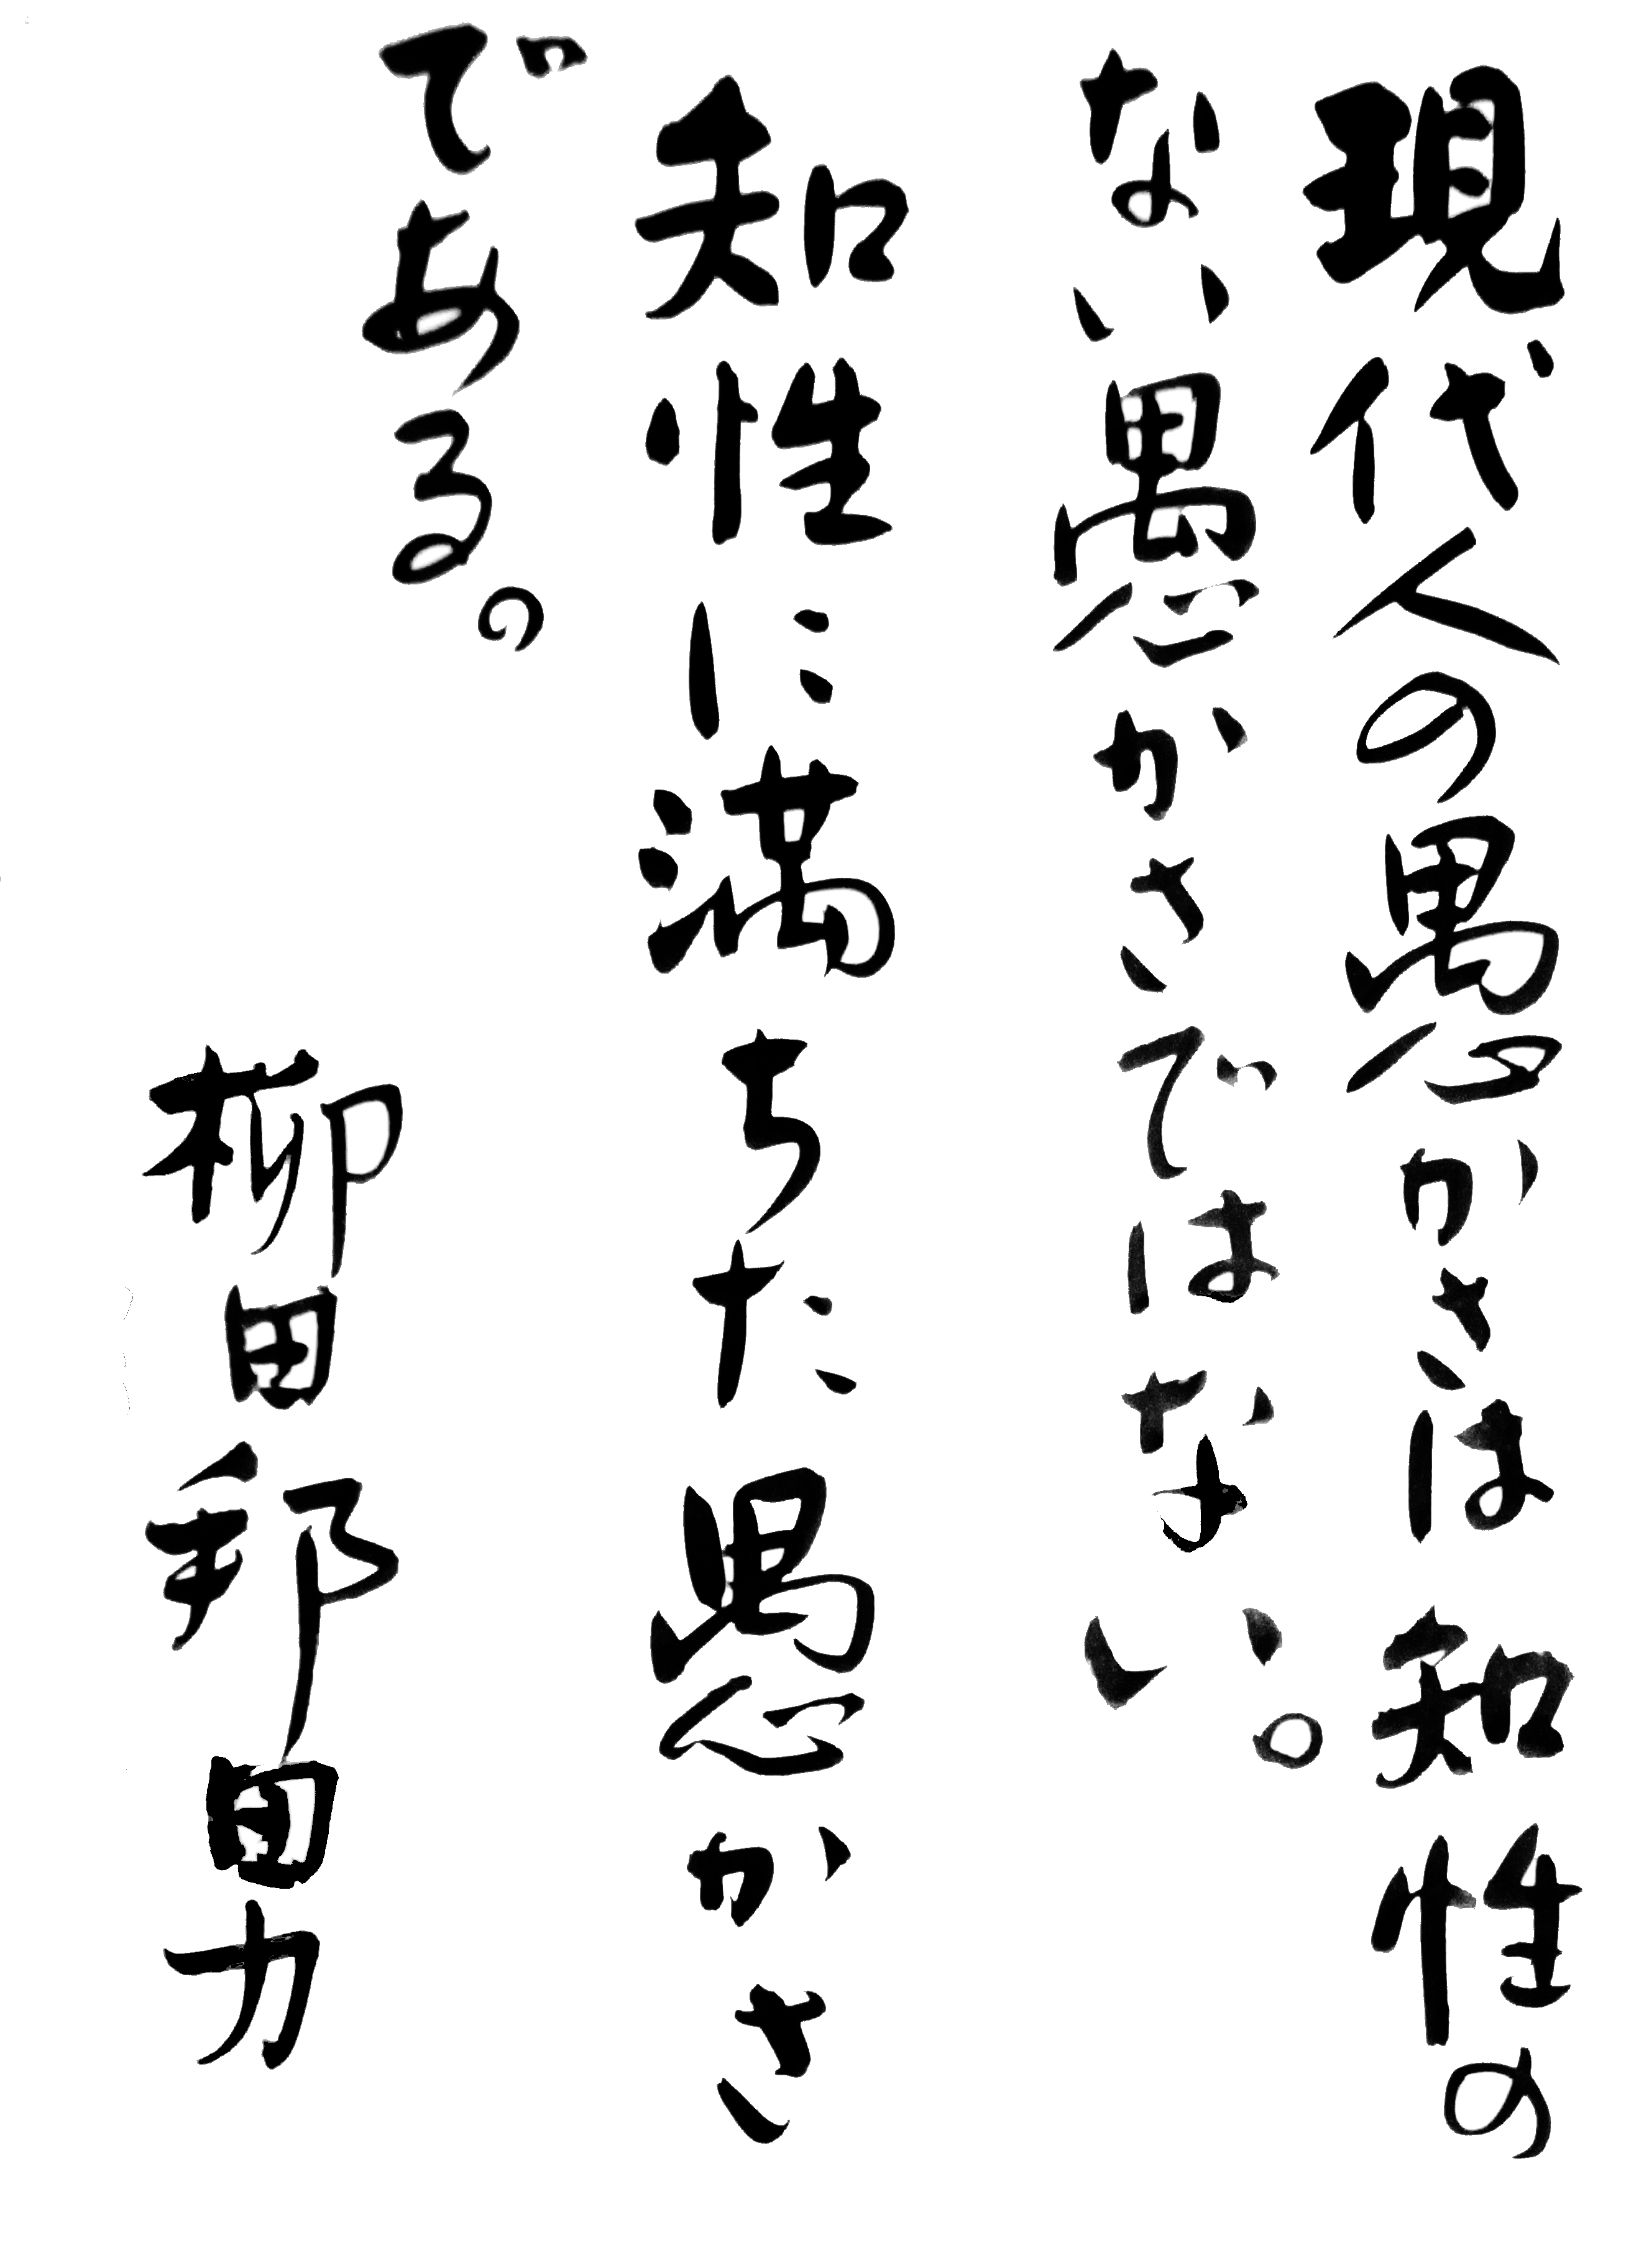 現代人の愚かさは知性の
ない愚かさではない。
知性に満ちた愚かさ
である。
柳田邦男